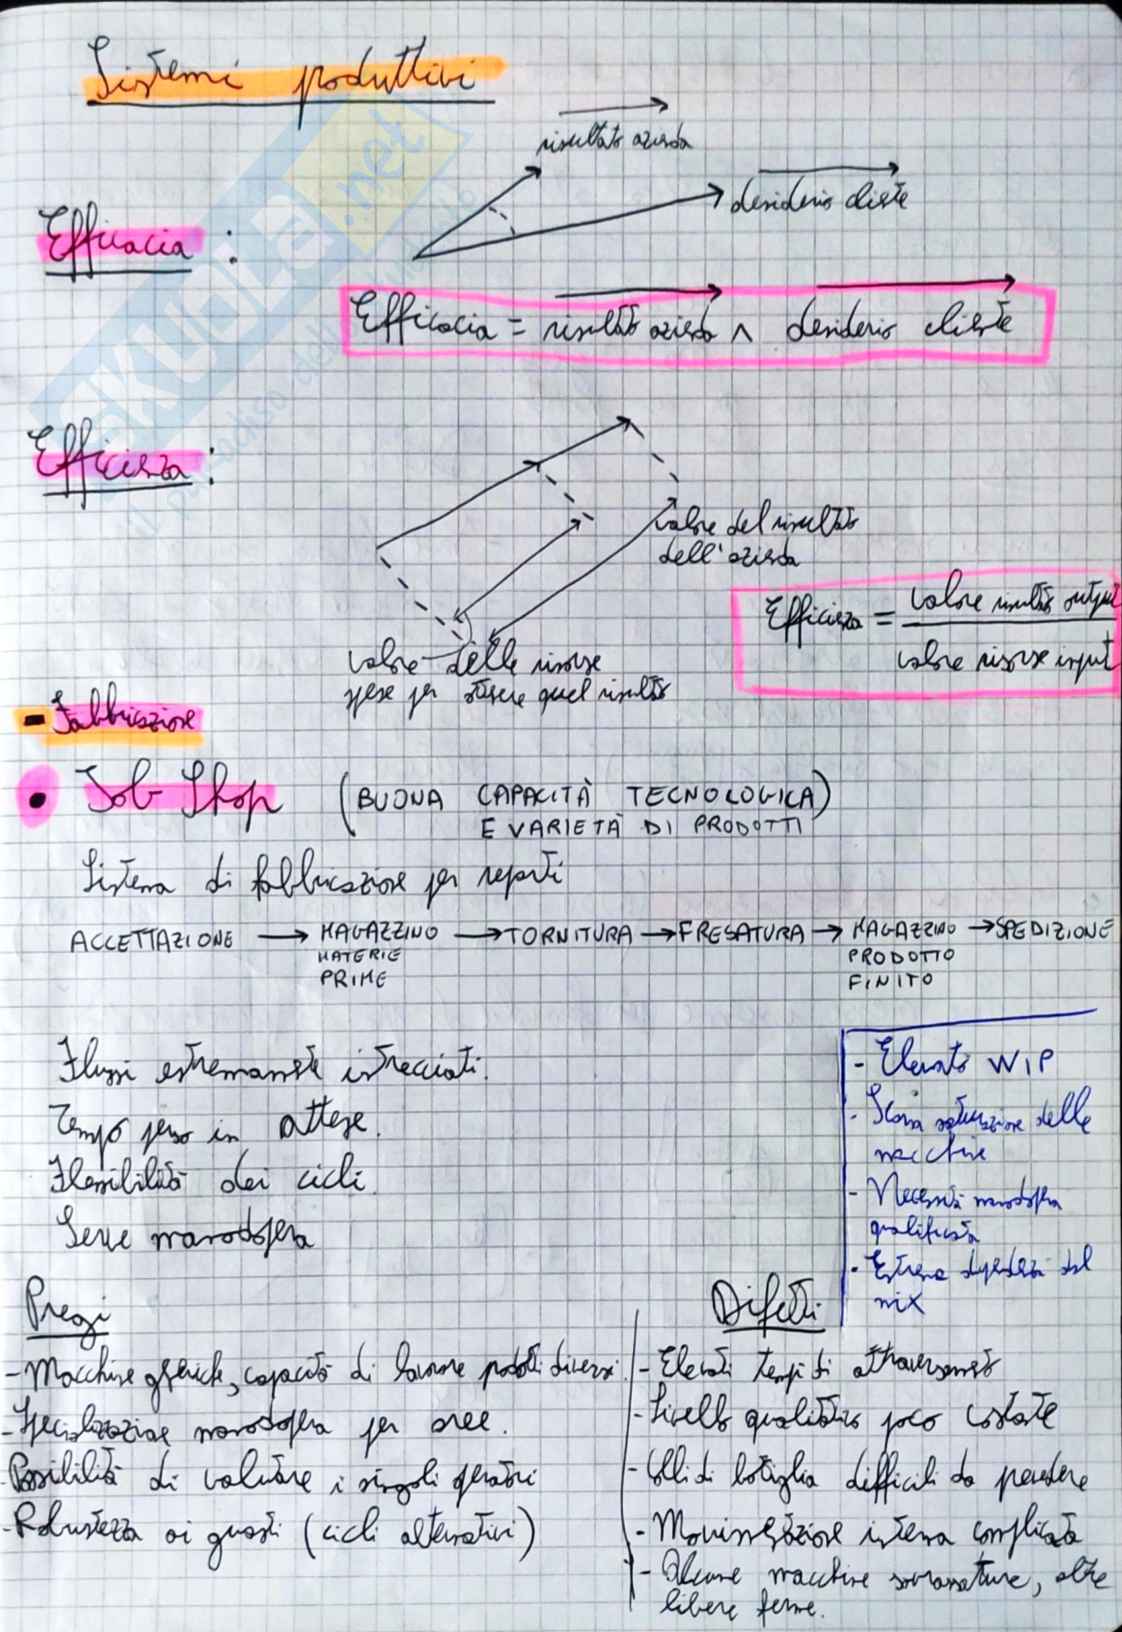 Sistemi produttivi
risultato azienda
desiderio cliente
Efficacia :
Efficacia = risultato azienda ∧ desiderio cliente
Efficienza :
valore del risultato
dell'azienda
Efficienza = valore risultato output
valore risorse input
valore delle risorse
spese per ottenere quel risultato
- Fabbricazione
• Job Shop (BUONA CAPACITÀ TECNOLOGICA)
E VARIETÀ DI PRODOTTI
Sistema di fabbricazione per reparti
ACCETTAZIONE → MAGAZZINO → TORNITURA → FRESATURA → MAGAZZINO → SPEDIZIONE
MATERIE PRODOTTO
PRIME FINITO
Flussi estremamente intrecciati.
Tempo perso in attese.
Flessibilità dei cicli
Serve manodopera
- Elevato WIP
- Scarsa saturazione delle
macchine
- Necessità manodopera
qualificata
- Estrema dipendenza dal
mix
Pregi
- Macchine generiche, capacità di lavorare prodotti diversi.
- Specializzazione manodopera per aree.
- Possibilità di valutare i singoli operatori
- Robustezza ai guasti (cicli alternativi)
Difetti
- Elevati tempi di attraversamento
- Livello qualitativo poco costante
- Colli di bottiglia difficili da prevedere
- Movimentazione interna complicata
- Alcune macchine sovrassature, altre
libere ferme.
SKUOLA.net